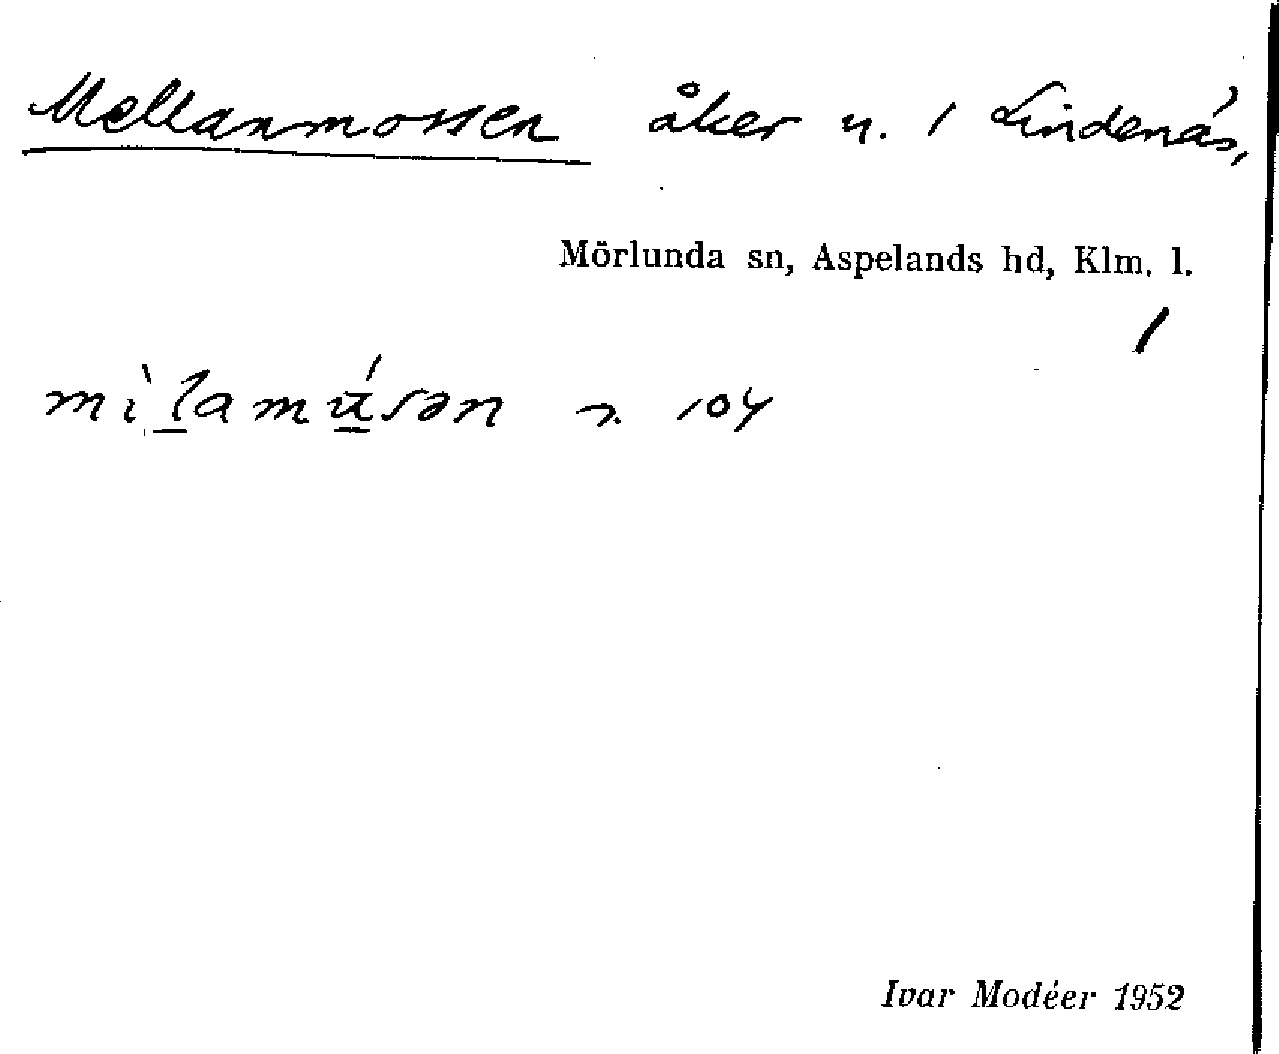 Mellanmossen åker u. 1 Lindenäs,
Mörlunda sn, Aspelands hd, Klm. l.
1
mìl̲amú̲sən n. 104
Ivar Modéer 1952